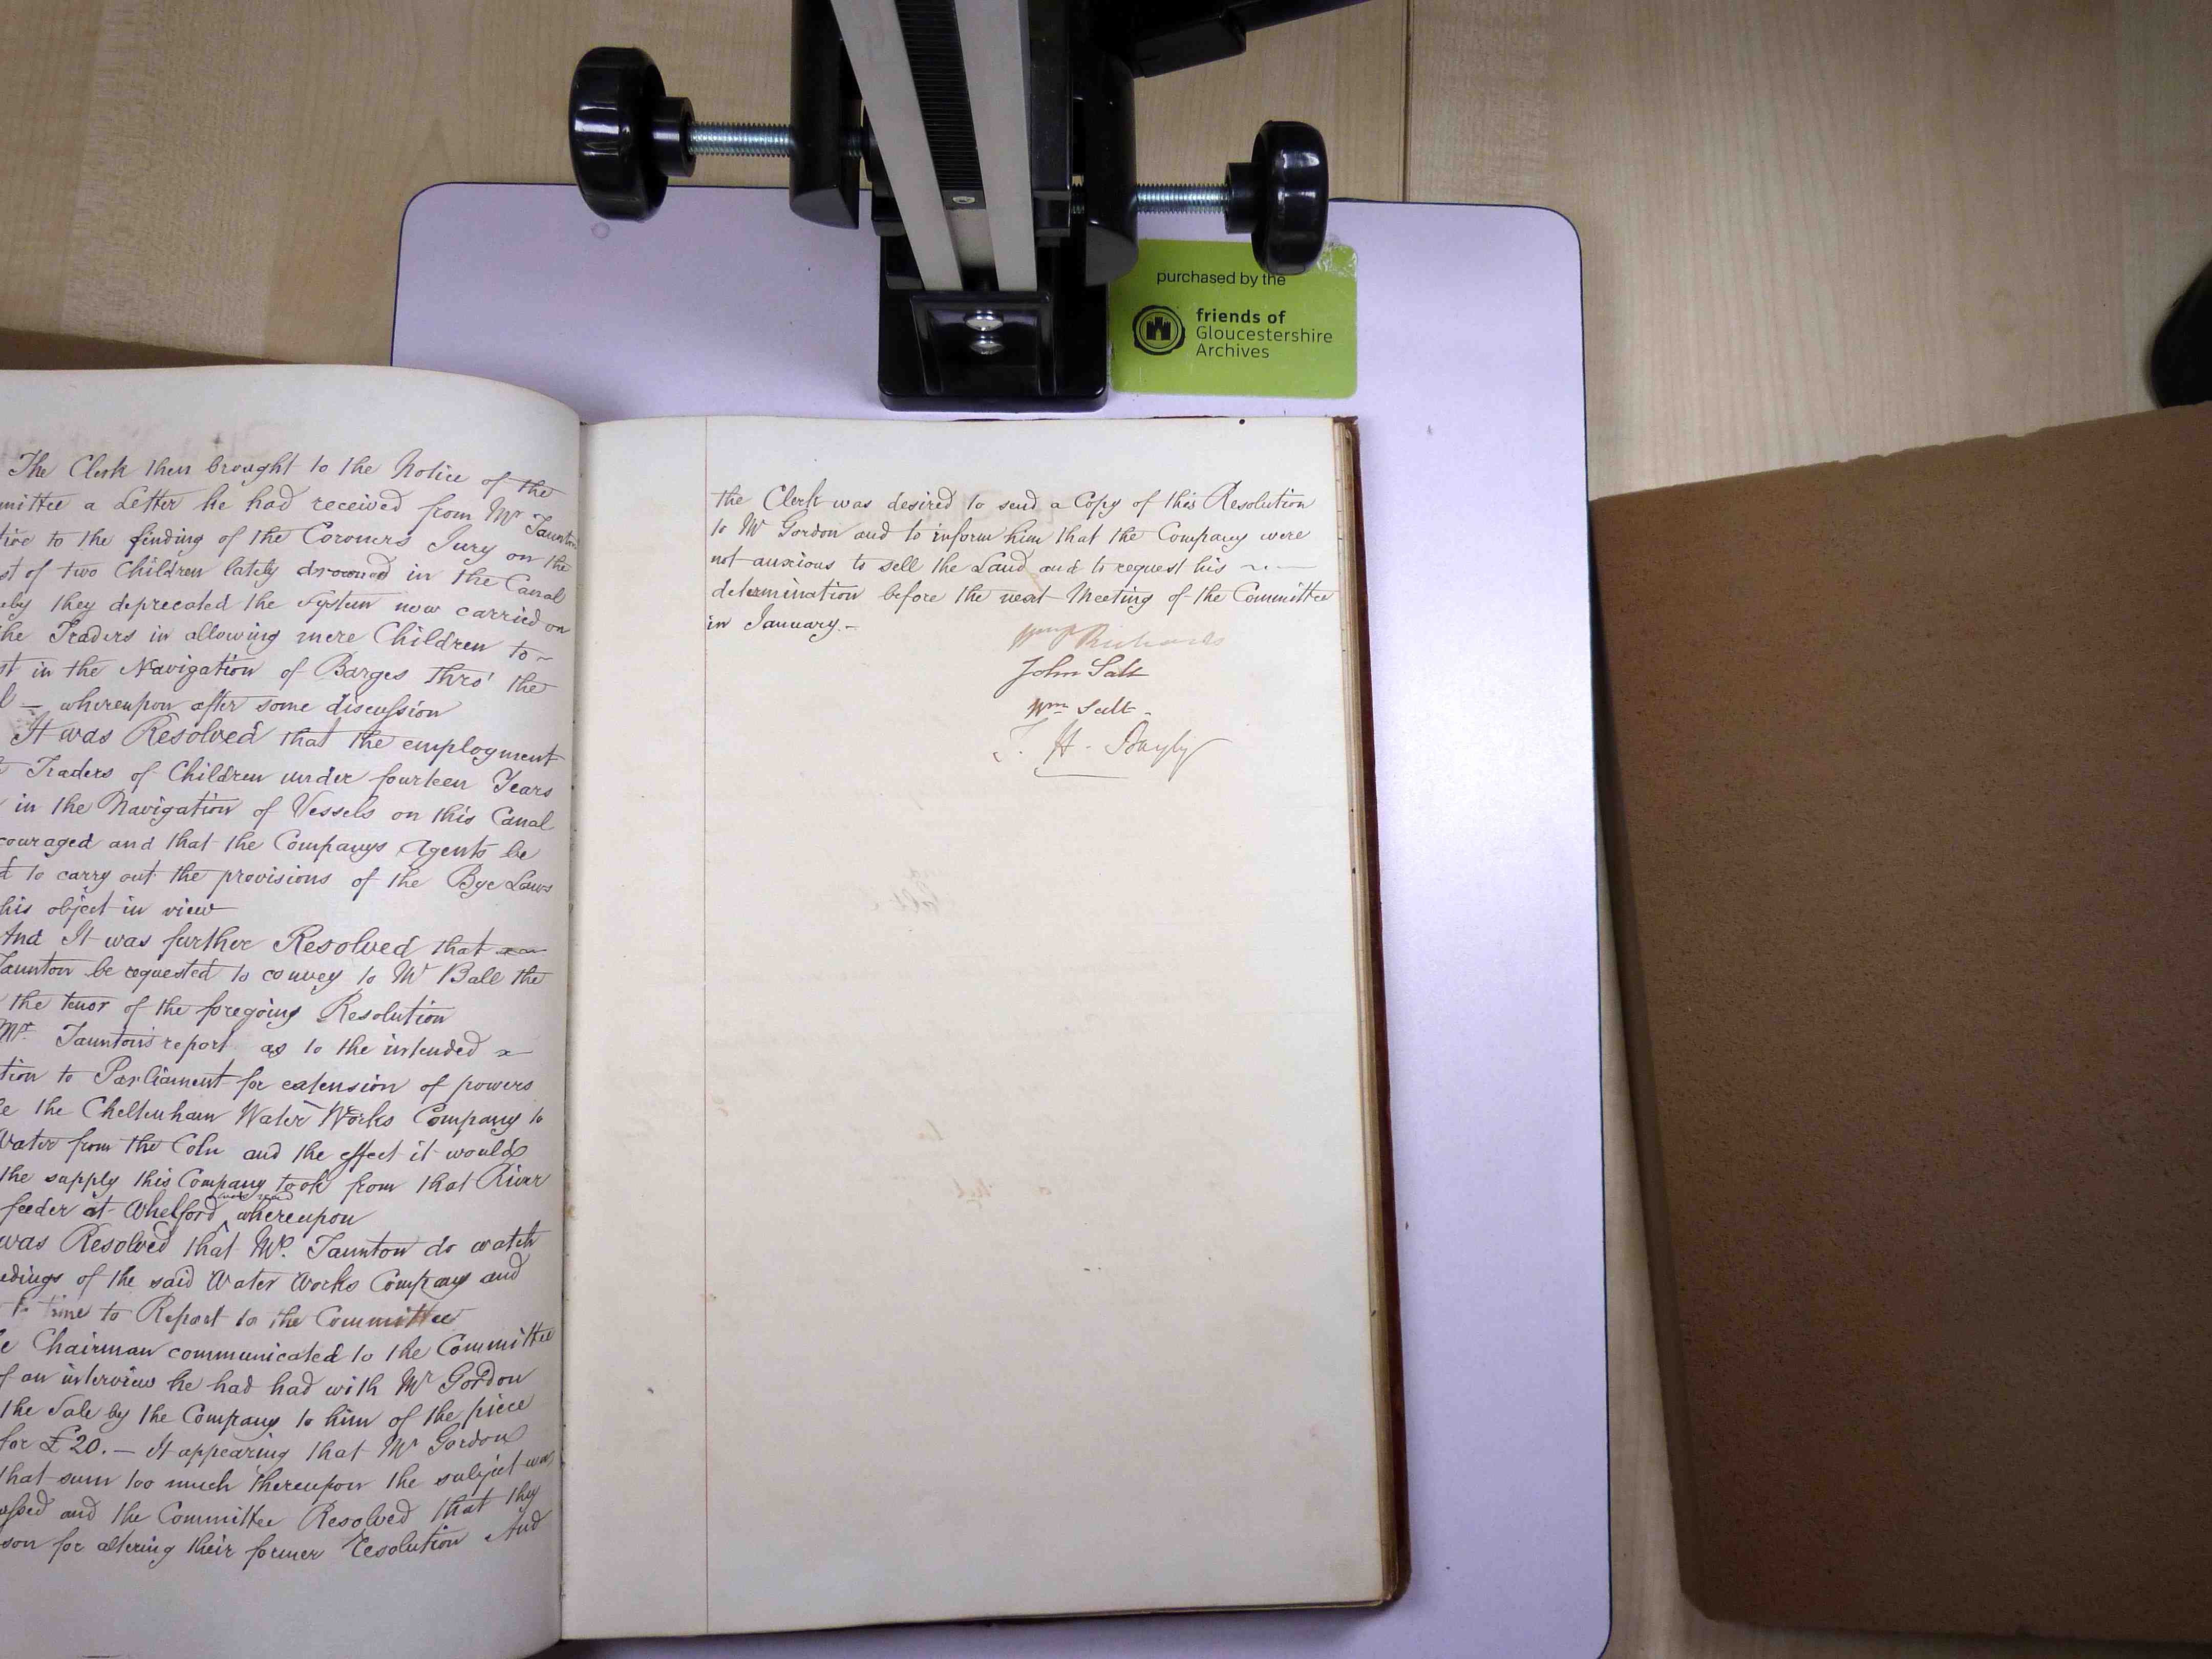 purchased by the
friends of
Gloucestershire
Archives
The Clerk then brought to the Notice of the
mittee a Letter he had received from Mr Taunton
tive to the finding of the Coroners Jury on the
st of two Children lately drowned in the Canal
eby they deprecated the System now carried on
he Traders in allowing mere Children to ~
st in the Navigation of Barges thro' the
l — whereupon after some discussion
It was Resolved that the employment
Traders of Children under fourteen Years
in the Navigation of Vessels on this Canal
couraged and that the Companys Agents be
d to carry out the provisions of the Bye Laws
his object in view
And It was further Resolved that
Taunton be requested to convey to Mr Ball the
the tenor of the foregoing Resolution
Mr. Taunton's report as to the intended
tion to Parliament for extension of powers
le the Cheltenham Water Works Company to
Water from the Coln and the effect it would
the supply this Company took from that River
feeder at Whelford was read whereupon
was Resolved that Mr. Taunton do watch
edings of the said Water Works Company and
time to Report to the Committee
e Chairman communicated to the Committee
f an interview he had had with Mr Gordon
the Sale by the Company to him of the piece
for £20. — It appearing that Mr Gordon
that sum too much thereupon the subject was
ussed and the Committee Resolved that they
son for altering their former Resolution And
the Clerk was desired to send a Copy of this Resolution
to Mr Gordon and to inform him that the Company were
not anxious to sell the Land and to request his ~ . —
determination before the next Meeting of the Committee
in January. –
Richards
John Salt
Wm Salt.
T. H. Bayly